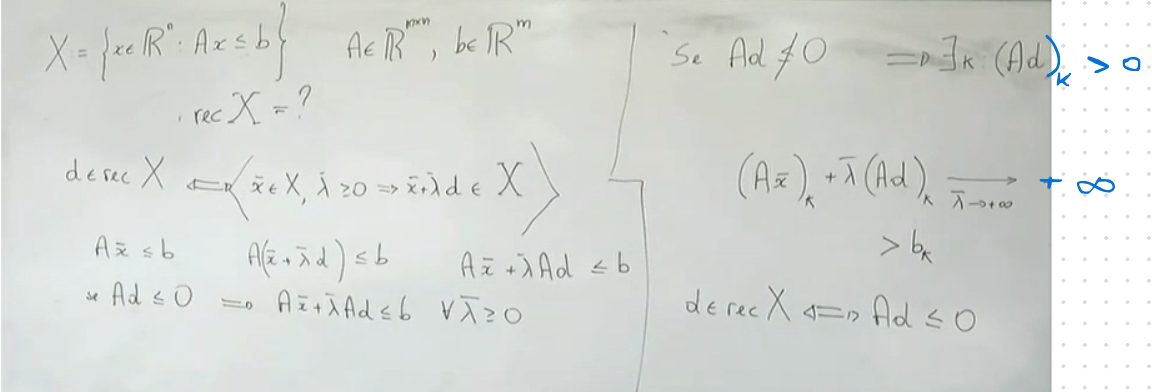 X = {x ∈ ℝⁿ : Ax ≤ b} A ∈ ℝᵐˣⁿ, b ∈ ℝᵐ
rec X = ?
d ∈ rec X ⇔ ⟨x̄ ∈ X, λ̄ ≥ 0 ⇒ x̄ + λ̄d ∈ X⟩
Ax̄ ≤ b A(x̄ + λ̄d) ≤ b Ax̄ + λ̄Ad ≤ b
se Ad ≤ 0 ⇒ Ax̄ + λ̄Ad ≤ b ∀λ̄ ≥ 0
Se Ad ≰ 0 ⇒ ∃k : (Ad)ₖ > 0
(Ax̄)ₖ + λ̄(Ad)ₖ → + ∞
λ̄→+∞
> bₖ
d ∈ rec X ⇔ Ad ≤ 0